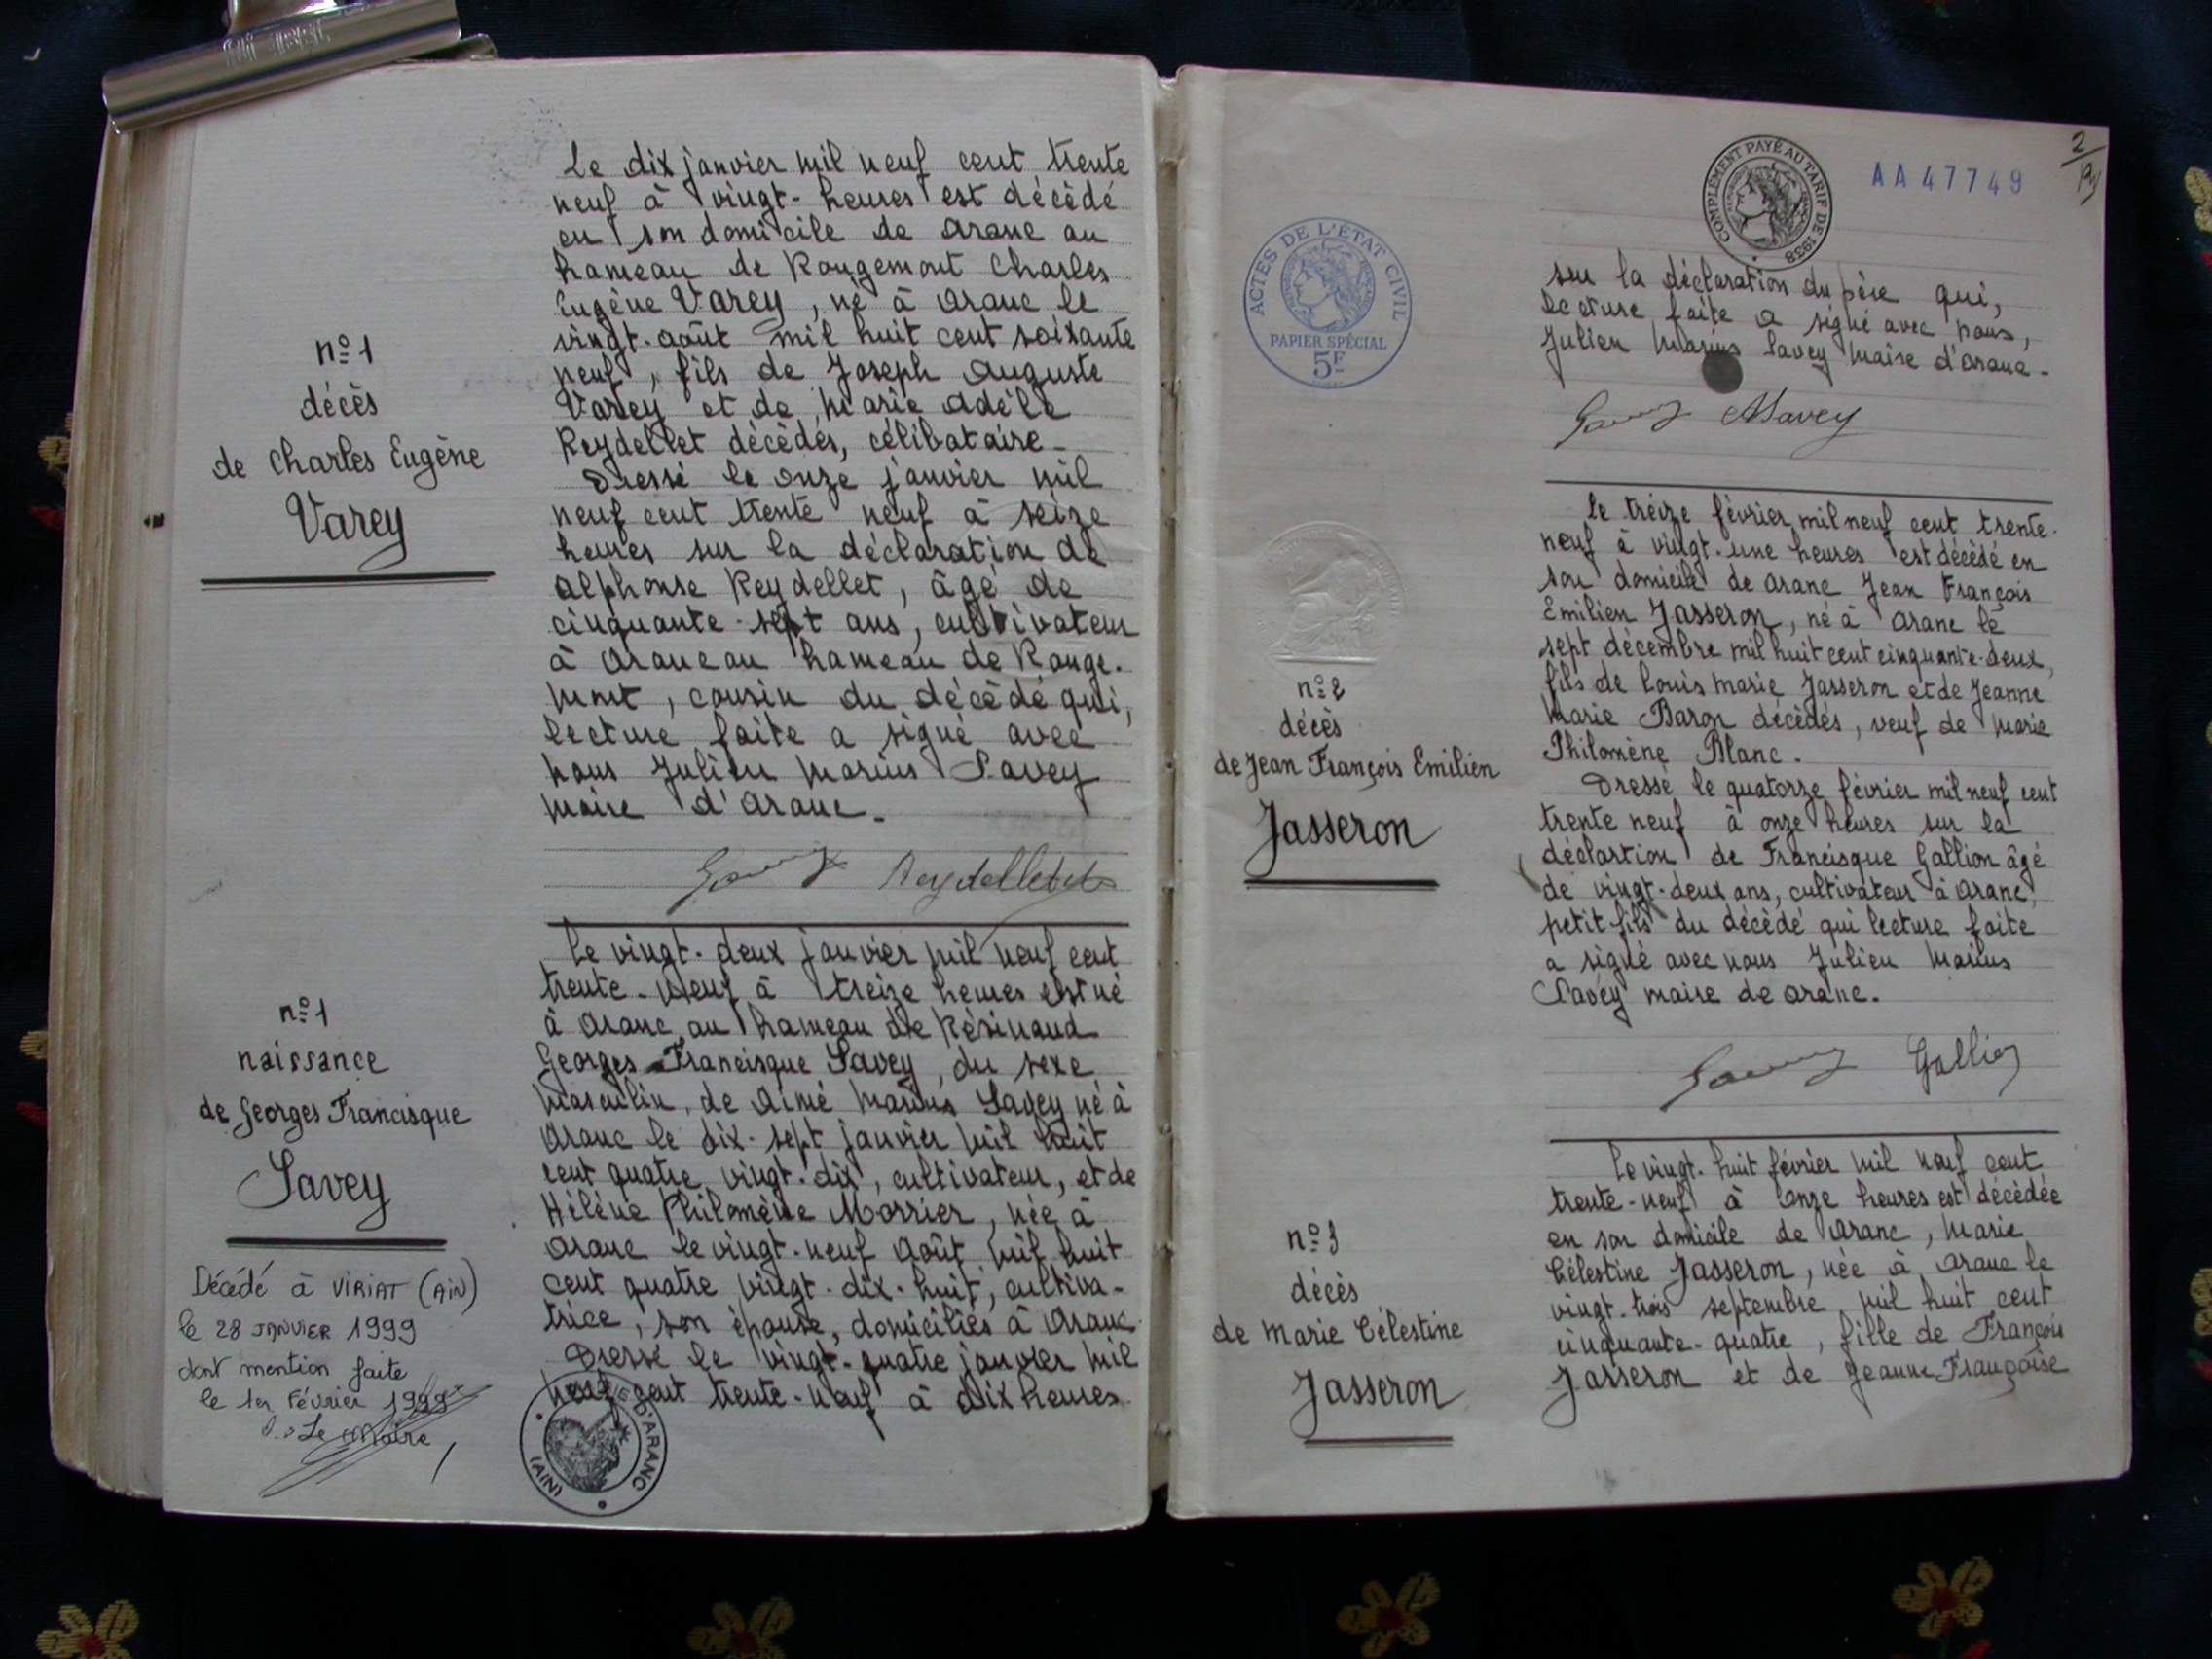 n° 1
décès
de Charles Eugène
Varey
Le dix janvier mil neuf cent trente
neuf à vingt-heures est décédé
en son domicile de Aranc au
hameau de Rougemont Charles
Eugène Varey, né à Aranc le
vingt-août mil huit cent soixante
neuf, fils de Joseph Auguste
Varey et de Marie Adèle
Reydellet décédés, célibataire-
Dressé le onze janvier mil
neuf cent trente neuf à seize
heures sur la déclaration de
Alphonse Reydellet, âgé de
cinquante-sept ans, cultivateur
à Aranc au hameau de Rouge-
mont, cousin du décédé qui,
lecture faite a signé avec
nous Julien Marius Savey
maire d'Aranc.
Savey Reydellet
n° 1
naissance
de Georges Francisque
Savey
Décédé à VIRIAT (AIN)
le 28 JANVIER 1999
dont mention faite
le 1er Février 1999
Le Maire
Le vingt-deux janvier mil neuf cent
trente-neuf à treize heures est né
à Aranc au hameau de Résinand
Georges Francisque Savey, du sexe
masculin, de Aimé Marius Savey né à
Aranc le dix-sept janvier mil huit
cent quatre vingt-dix, cultivateur, et de
Hélène Philomène Morrier, née à
Aranc le vingt-neuf août mil huit
cent quatre vingt-dix-huit, cultiva-
trice, son épouse, domiciliés à Aranc
Dressé le vingt-quatre janvier mil
neuf cent trente-neuf à dix heures
MAIRIE D'ARANC
(AIN)
COMPLÉMENT PAYÉ AU TARIF DE 1938
AA 47749
2
ACTES DE L'ÉTAT CIVIL
PAPIER SPÉCIAL
5F
sur la déclaration du père qui,
lecture faite a signé avec nous,
Julien Marius Savey maire d'Aranc-
Savey MSavey
n° 2
décès
de Jean François Emilien
Jasseron
Le treize février mil neuf cent trente-
neuf à vingt-une heures est décédé en
son domicile de Aranc Jean François
Emilien Jasseron, né à Aranc le
sept décembre mil huit cent cinquante-deux,
fils de Louis Marie Jasseron et de Jeanne
Marie Baron décédés, veuf de Marie
Philomène Blanc.
Dressé le quatorze février mil neuf cent
trente neuf à onze heures sur la
déclartion de Francisque Gallion âgé
de vingt-deux ans, cultivateur à Aranc,
petit fils du décédé qui lecture faite
a signé avec nous Julien Marius
Savey maire de Aranc.
Savey Gallion
n° 3
décès
de Marie Célestine
Jasseron
Le vingt-huit février mil neuf cent
trente-neuf à onze heures est décédée
en son domicile de Aranc, Marie
Célestine Jasseron, née à Aranc le
vingt-trois septembre mil huit cent
cinquante-quatre, fille de François
Jasseron et de Jeanne Françoise